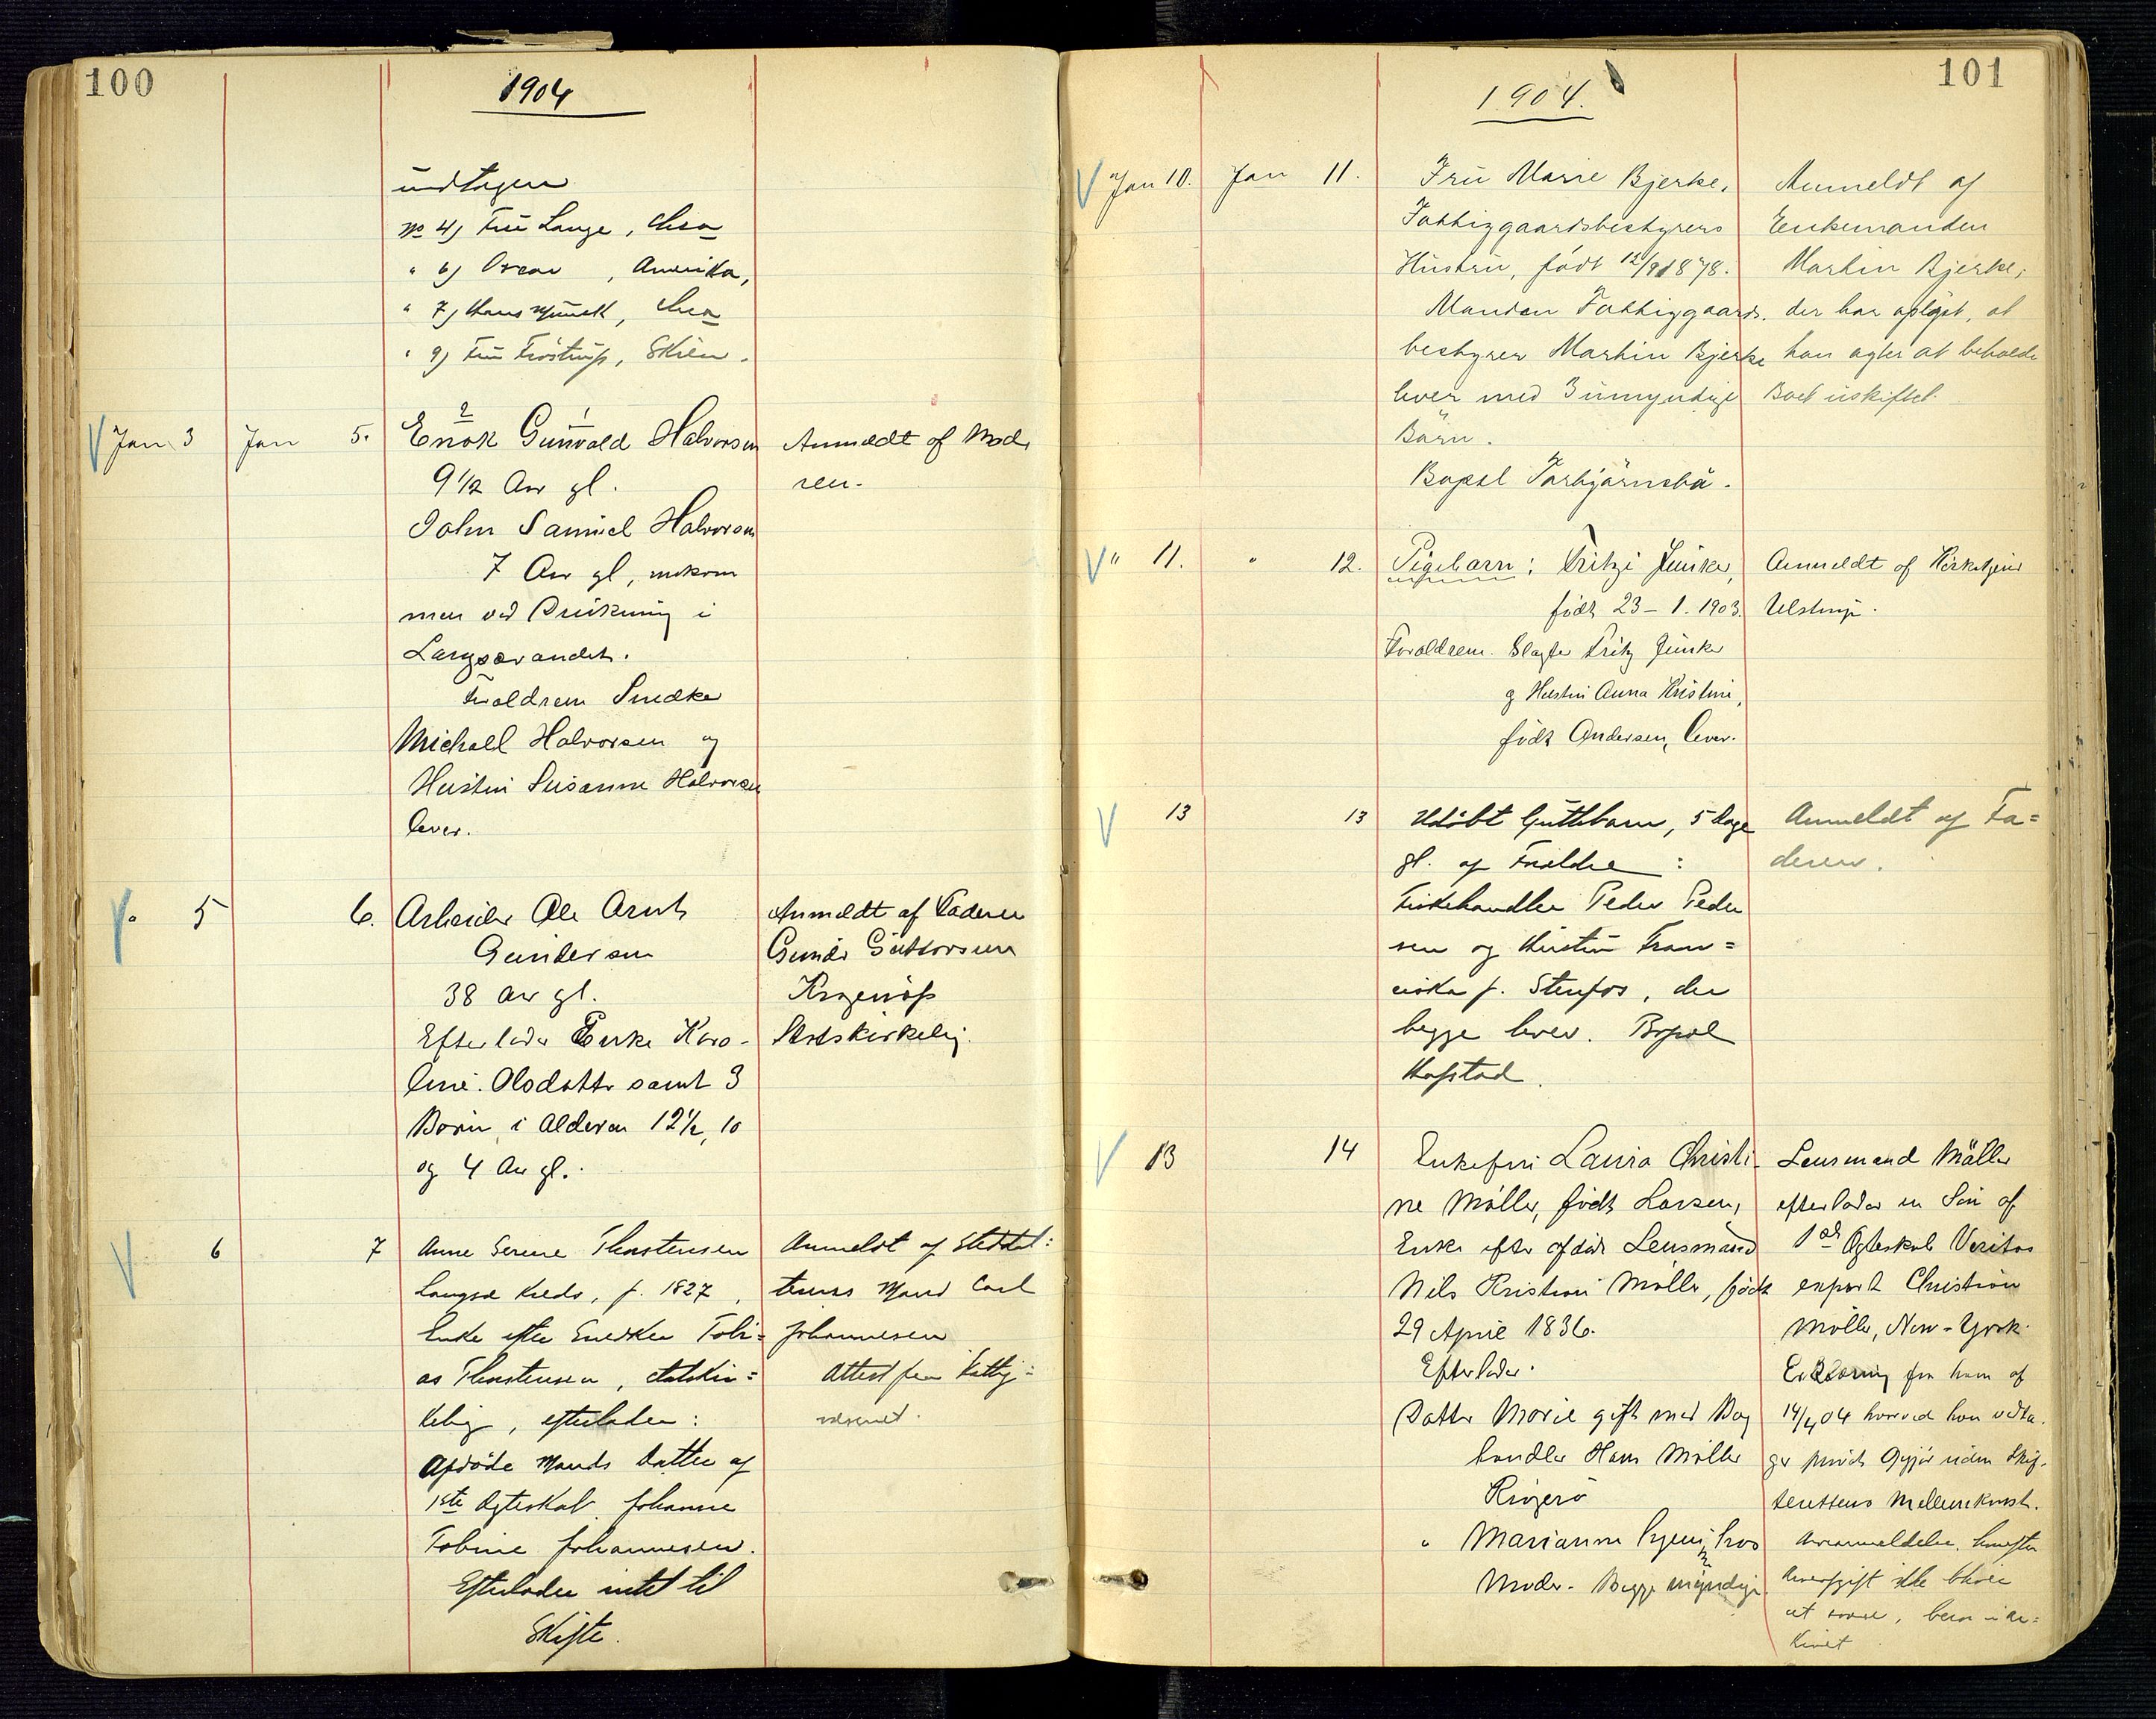 100
1904
undtagen
No 4) Fru Lange, chra
" 6) Oscar, Amerika,
" 7) Hans Munch, chra
" 9) Fru Frøstrup, Skien.
Jan 3 Jan 5. Enok Gunvald Halvorsen
2 1
9 1/2 Aar gl.
John Samuel Halvorsen
7 Aar gl, omkom
men ved Drukning i
Langsævandet.
Forældrene Snedker
Michael Halvorsen og
Hustru Susanne Halvorsen
lever.
Anmeldt af Mode
ren.
" 5 6. Arbeider Ole Arnt
Gundersen
38 Aar gl.
Efterlader Enke Karo-
line Olsdatter samt 3
Børn i Alderen 12 1/2, 10
og 4 Aar gl.
Anmeldt af Faderen
Gunder Guttorsen
Krogenæs
Statskirkelig.
6 7 Anne Serine Thorstensen
Langsæ Kreds, f. 1827,
Enke efter Snedker Tobi=
as Thorstensen, statskir=
kelig, efterlader:
Afdøde Mands Datter af
1ste Ægteskab Johanne
Tobine Johannesen.
Efterlader intet til
Skifte.
Anmeldt af Steddat=
terens Mand Carl
Johannesen
Attest fra Fattig=
væsenet.
101
1904.
Jan 10. Jan 11. Fru Marie Bjerke,
Fattiggaardsbestyrers
Hustru, født 12/9 1878.
Manden Fattiggaards.
bestyrer Martin Bjerke
lever med 3 umyndige
Børn.
Bopæl Torbjørnsbu.
Anmeldt af
Enkemanden
Martin Bjerke,
der har oplyst, at
han agter at beholde
Boet uskiftet.
" 11. " 12. Pigebarn: Fritzi Junker,
født 23-1. 1903.
Forældrene. Slagter Fritz Junker
og Hustru Anna Kristine,
født Andersen, lever.
Anmeldt af Kirketjener
Ulstrup.
13 13 Udøbt Guttebarn, 5 Dage
gl. af Forældre:
Fiskehandler Peder Peder
sen og Hustru Fran=
ciska f. Stenfos, der
begge lever. Bopæl
Hafstad.
Anmeldt af Fa=
deren.
13 14 Enkefru Laura Christi-
ne Møller, født Larsen,
Enke efter afdøde Lensmand
Nils Kristian Møller, født
29 April 1836.
Efterlader.
Datter Marie gift med Bog
handler Hans Møller
Risør
" Marianne hjemme hos
Moder. Begge myndige.
Lensmand Møller
efterlader en Søn af
1ste Ægteskab Veritas
expert Christian
Møller, New-York.
Erklæring fra ham af
14/1 04 hvorved han vedta-
ger privat Opgjør uden Skif-
terettens Mellemkomst.
Arveanmeldelse, hvorefter
Arveafgift ikke bliver
at svare, bero i Ar=
kivet